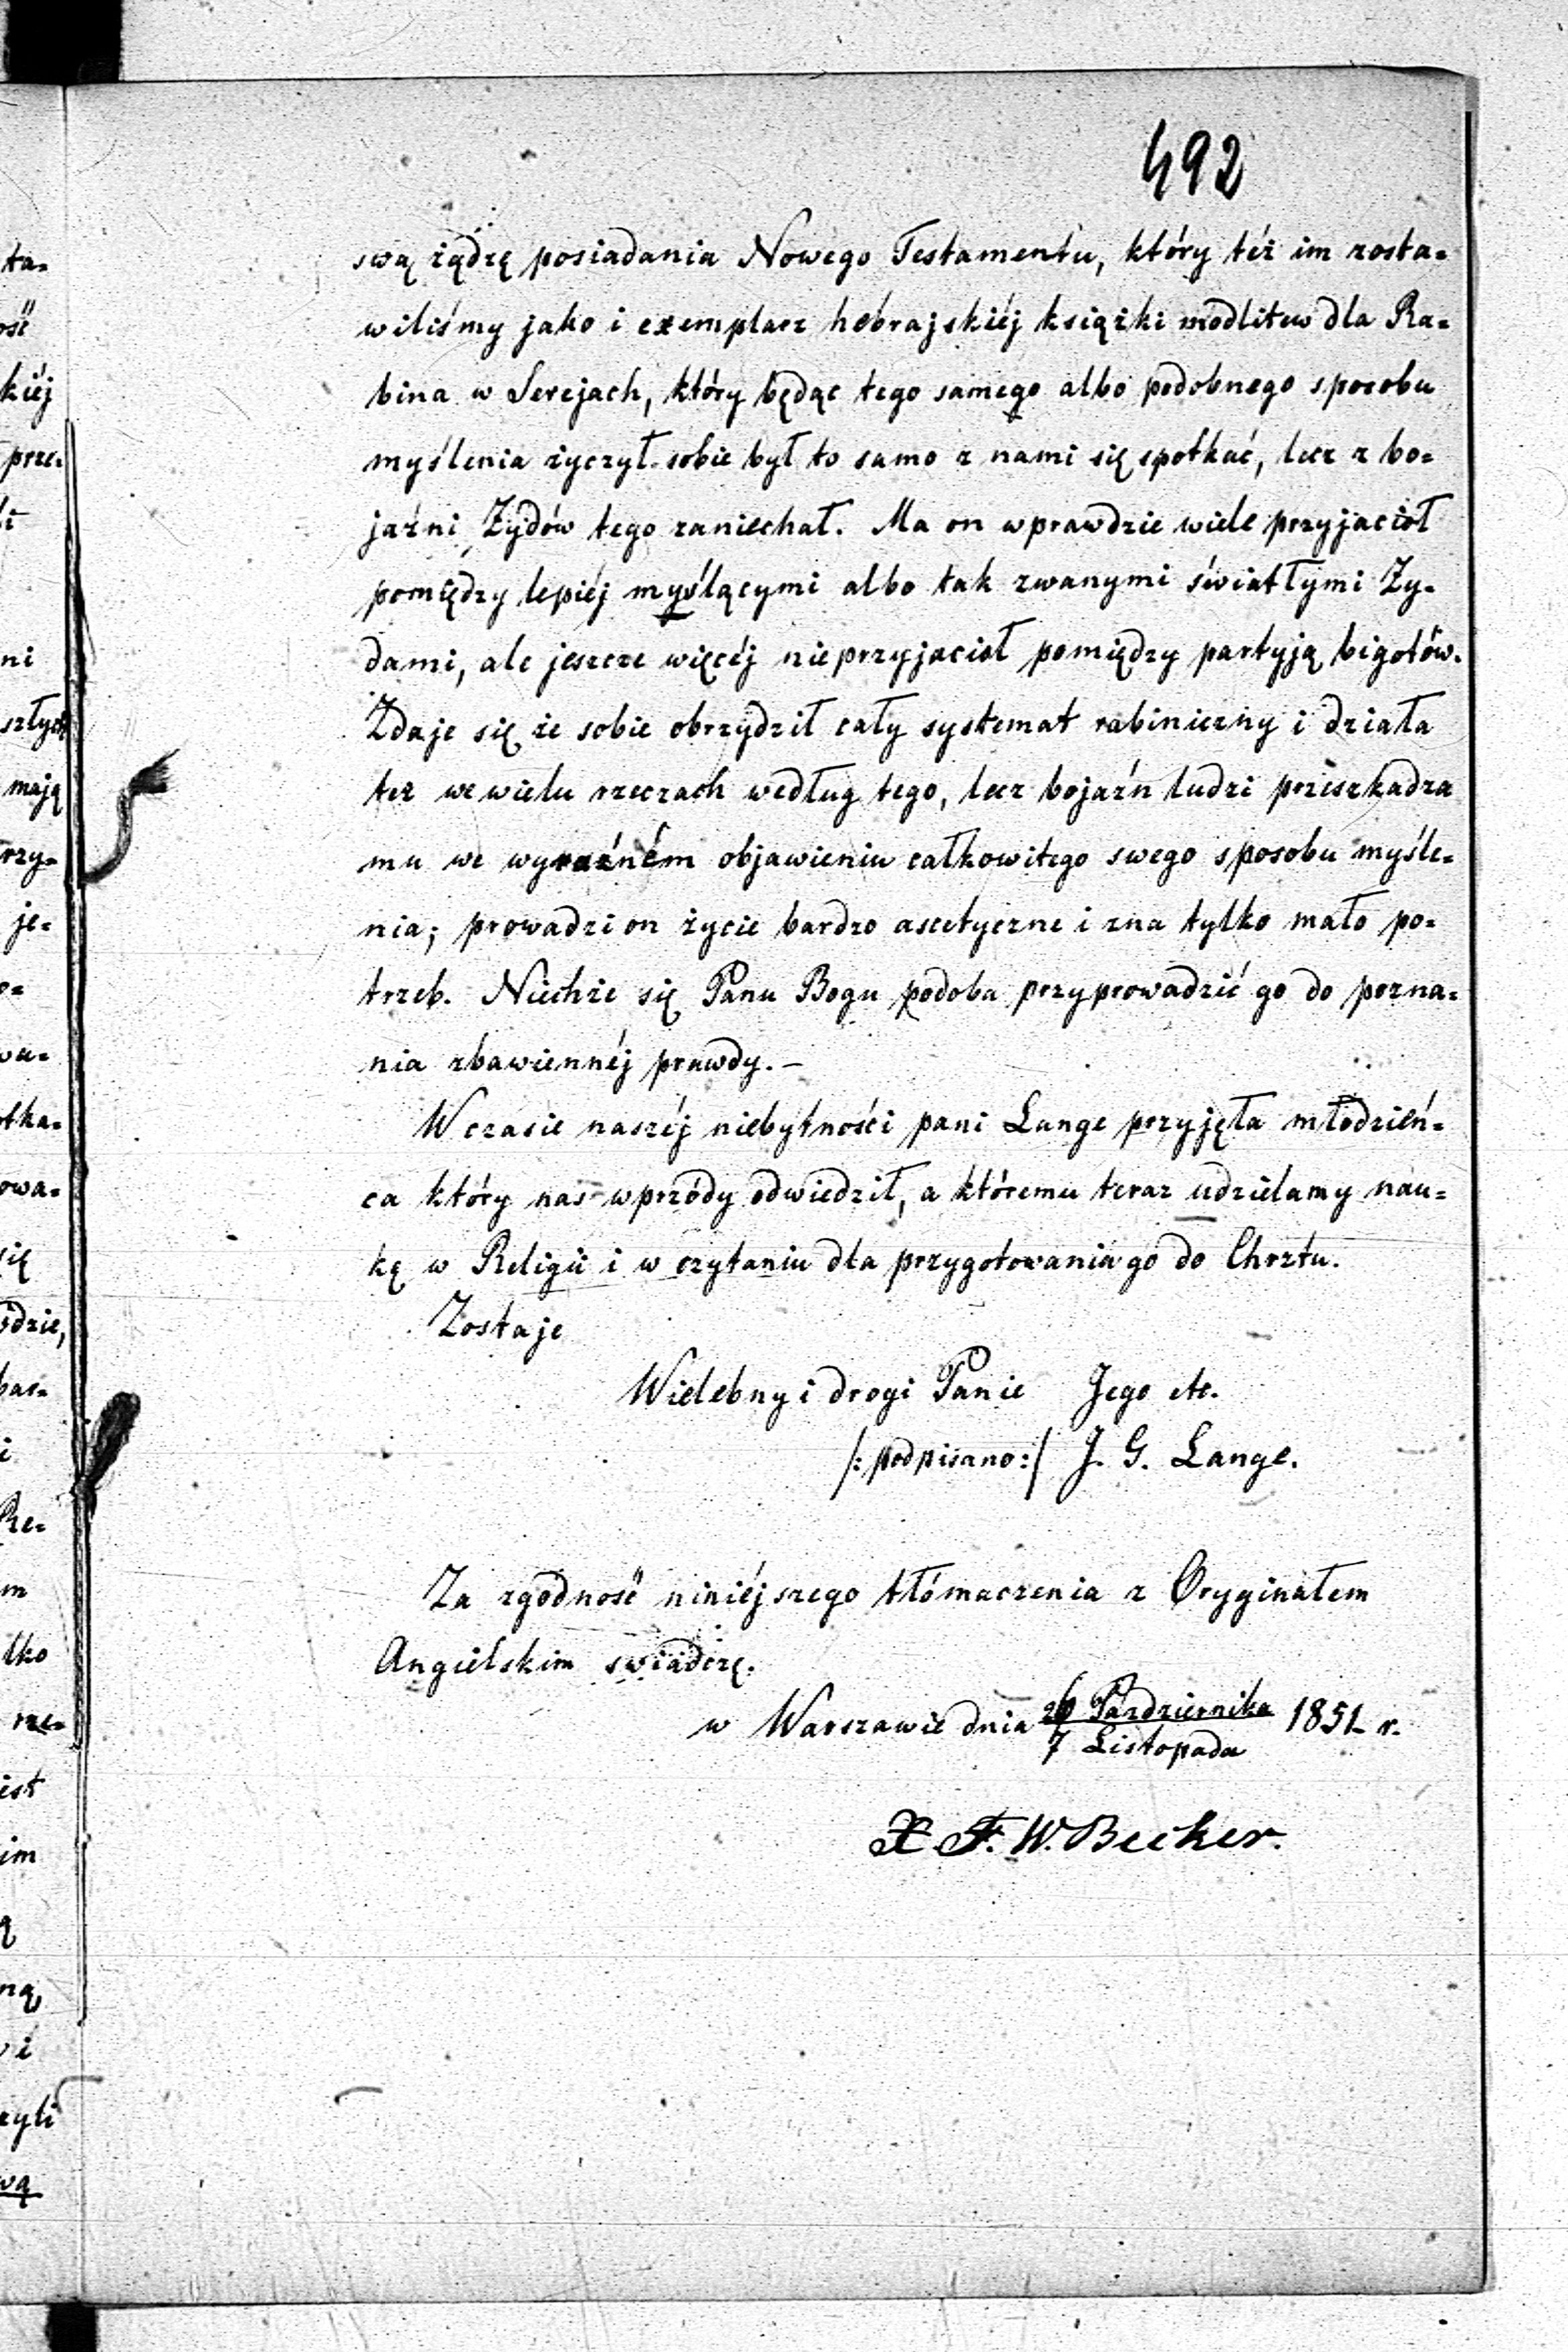 492
swą żądzę posiadania Nowego Testamentu, który też im zosta=
wiliśmy jako i exemplarz hebrajskiéj książki modlitew dla Ra=
bina w Serejach, który będąc tego samego albo podobnego sposobu
myślenia życzył sobie był to samo z nami się spotkać, lecz z bo=
jaźni Żydów tego zaniechał. Ma on wprawdzie wiele przyjaciół
pomiędzy lepiéj myślącymi albo tak zwanymi światłymi Ży=
dami, ale jeszcze więcéj nieprzyjaciół pomiędzy partyją bigotów.
Zdaje się że sobie obrzydził cały systemat rabiniczny i działa
też we wielu rzeczach według tego, lecz bojaźń ludzi przeszkadza
mu we wyraźném objawieniu całkowitego swego sposobu myśle=
nia; prowadzi on życie bardzo ascetyczne i zna tylko mało po=
trzeb. Niechże się Panu Bogu podoba przyprowadzić go do pozna=
nia zbawiennéj prawdy. –
W czasie naszéj niebytności pani Lange przyjęła młodzień=
ca który nas wprzódy odwiedził, a któremu teraz udzielamy nau=
kę w Religii i w czytaniu dla przygotowania go do Chrztu.
Zostaje
Wielebny i drogi Panie Jego etc.
/: podpisano :/ J. G. Lange.
Za zgodność niniéjszego tłómaczenia z Oryginałem
Angielskim swiadczę.
w Warszawie dnia 26 Października / 7 Listopada 1851 r.
X F. W. Becker.